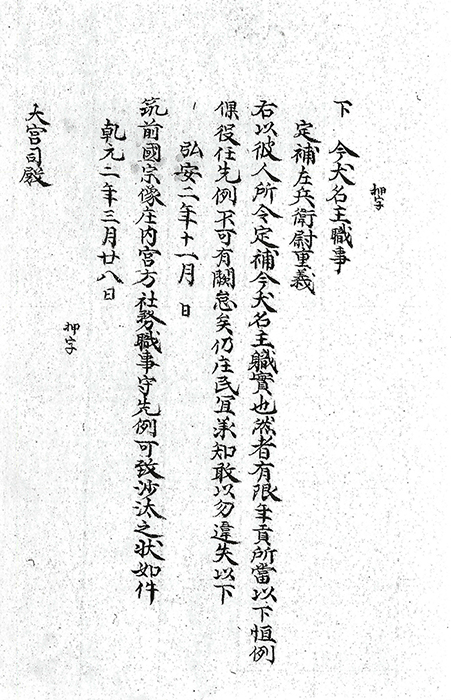 押字
下　今犬名主職事
定補左兵衛尉重義
右以彼人所令定補今犬名主職實也然者有限年貢所當以下恒例
課役任先例不可有闕怠矣仍庄民冝承知敢以勿違失以下
弘安二年十一月　日
筑前國宗像庄内宮方社務職事守先例可致沙汰之状如件
乾元二年三月廿八日
押字
大宮司殿